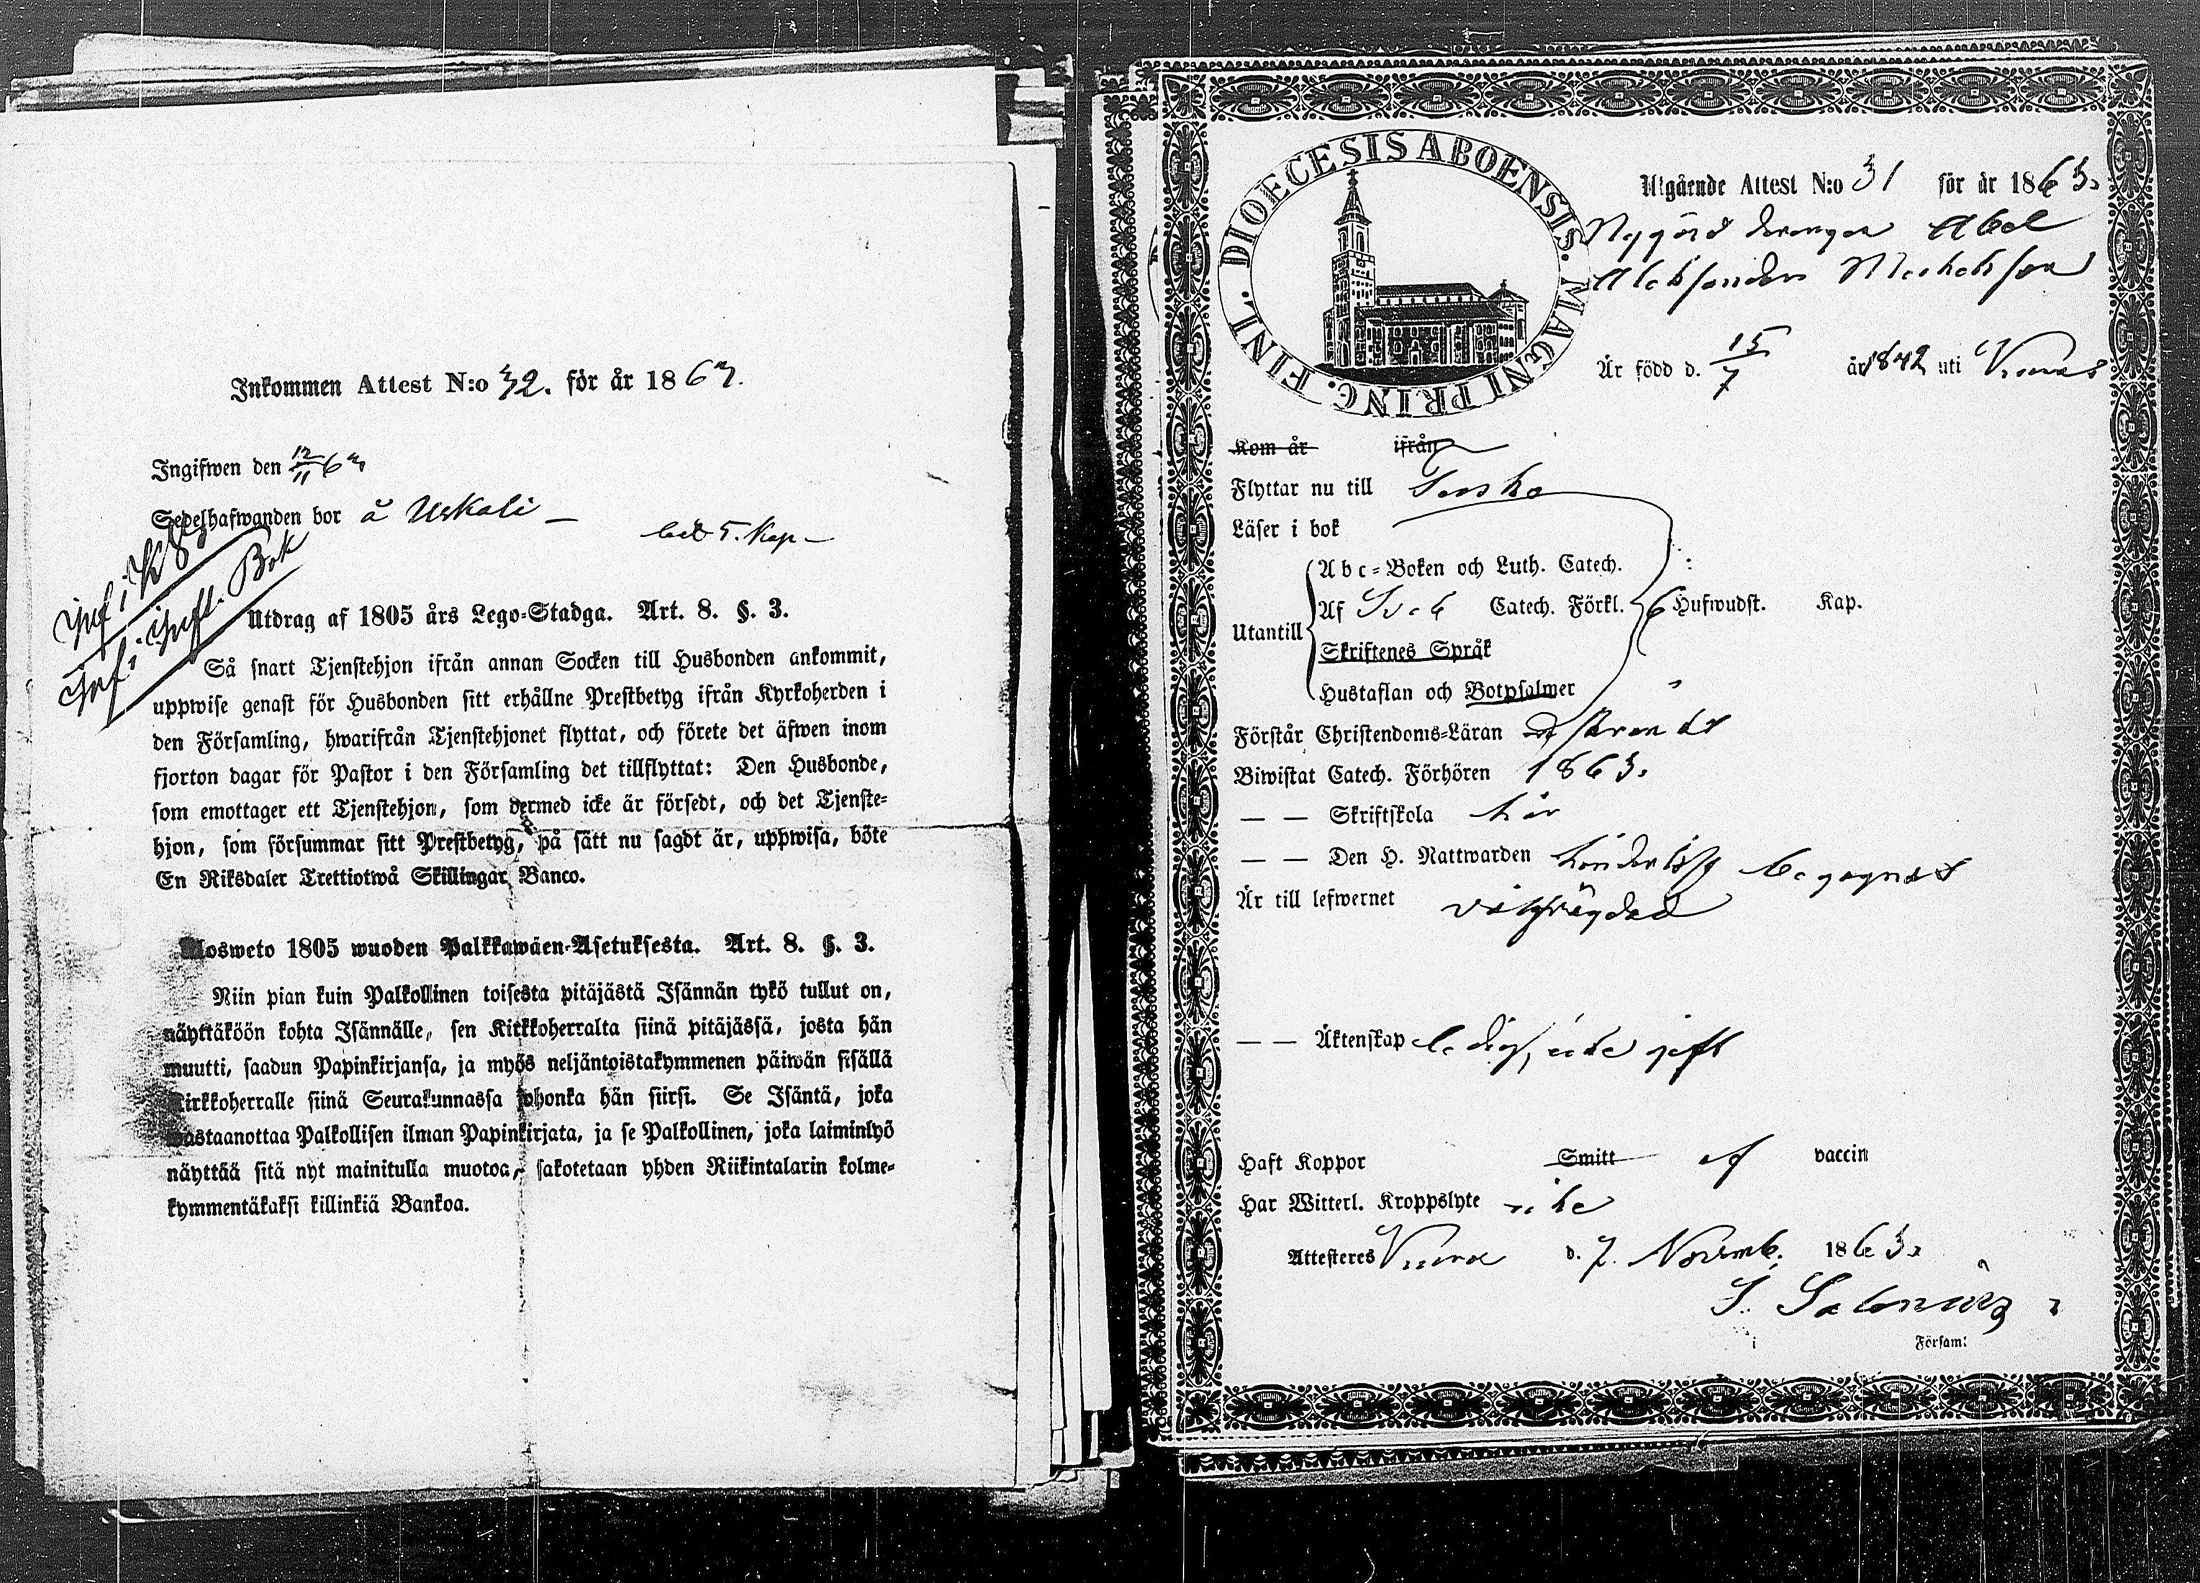 Inkommen Attest N:o 32. för år 1863.
Ingifwen den 12/11 63
Sedelhafwanden bor å Uskali —
bet 5. Kop —
Inf i K B
Inf. i Inflt. Bok
Utdrag af 1805 års Lego-Stadga. Art. 8. §. 3.
Så snart Tjenstehjon ifrån annan Socken till Husbonden ankommit,
uppwise genast för Husbonden sitt erhållne Prestbetyg ifrån Kyrkoherden i
den Församling, hwarifrån Tjenstehjonet flyttat, och förete det äfwen inom
fjorton dagar för Pastor i den Församling det tillflyttat: Den Husbonde,
som emottager ett Tjenstehjon, som dermed icke är försedt, och det Tjenste-
hjon, som försummar sitt Prestbetyg, på sätt nu sagdt är, uppwisa, böte
En Riksdaler Trettiotwå Skillingar Banco.
Ulosweto 1805 wuoden Palkkawäen-Asetuksesta. Art. 8. §. 3.
Niin pian kuin Palkollinen toisesta pitäjästä Isännän tykö tullut on,
näyttäköön kohta Isännälle, sen Kirkkoherralta siinä pitäjässä, josta hän
muutti, saadun Papinkirjansa, ja myös neljäntoistakymmenen päiwän sisällä
Kirkkoherralle siinä Seurakunnassa johonka hän siirsi. Se Isäntä, joka
wastaanottaa Palkollisen ilman Papinkirjata, ja se Palkollinen, joka laiminlyö
näyttää sitä nyt mainitulla muotoa, sakotetaan yhden Riikintalarin kolme-
kymmentäkaksi killinkiä Bankoa.
DIOECESIS ABOENSIS. MAGNI PRINC. FINL.
Utgående Attest N:o 31 för år 1863.
Nygård drengen Abel
Aleksander Michelsson
Är född d. 15/7 år 1842 uti
Kom år ifrån
Flyttar nu till
Läser i bok
Utantill
Abc-Boken och Luth. Catech.
Af Sveb Catech. Förkl. 6 Hufwudst. Kap.
Skriftenes Språk
Hustaflan och Botpsalmer
Förstår Christendoms-Läran
Biwistat Catech. Förhören 1863.
— — Skriftskola här
— — Den H. Nattwarden begagnat
Är till lefwernet välfrägdad
— — Äktenskap ledig, icke gift
Haft Koppor Smitt af vaccin
Har Witterl. Kroppslyte icke
Attesteres d. 7. Novemb. 1863.
Församl